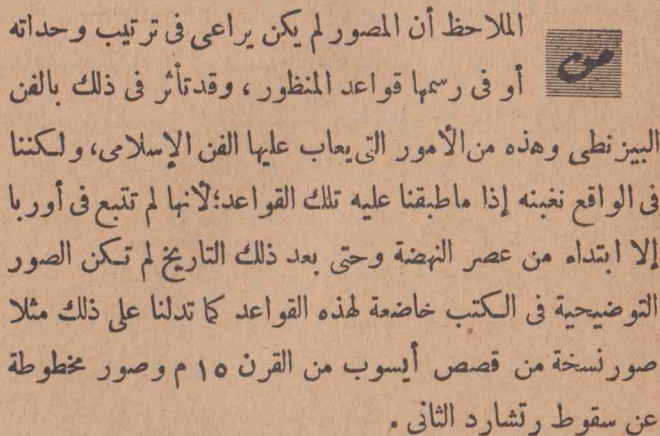 من الملاحظ أن المصور لم يكن يراعى فى ترتيب وحداته
أو فى رسمها قواعد المنظور ، وقد تأثر فى ذلك بالفن
البيزنطى وهذه من الأمور التى يعاب عليها الفن الإسلامى، ولكننا
فى الواقع نغبنه إذا ماطبقنا عليه تلك القواعد؛لأنها لم تتبع فى أوربا
إلا ابتداء من عصر النهضة وحتى بعد ذلك التاريخ لم تكن الصور
التوضيحية فى الكتب خاضعة لهذه القواعد كما تدلنا على ذلك مثلا
صور نسخة من قصص أيسوب من القرن ١٥ م وصور مخطوطة
عن سقوط رتشارد الثانى .